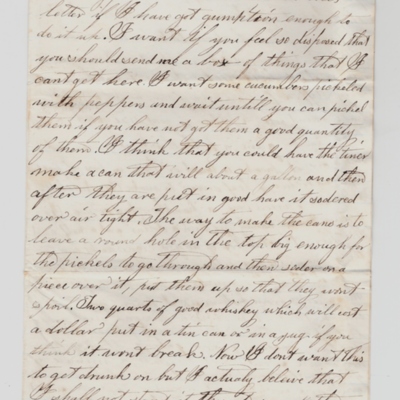 letter if I have got gumption enough to
do it uk. I want if you feel so disposed that
you should send me a box of things that I
cant get here I want some cucumbers pickeled
with peppers and wait untill you can pickel
them if you have not got them a good quantity
of them. I think that you could have the tiner
make a can that will about a gallon and then
after they are put in good have it sodered
over air tight. The way to make the cans is to
leave a round hole in the top big enough for
the pickels to go through and then soder on a
piece over it, put them up so that they wont
spoil. Two quarts of good whiskey which will cost
a dollar put in a tin can or in a jug if you
think it wont break. Now I dont want this
to get drunk on but I actualy beleive that
I shall not